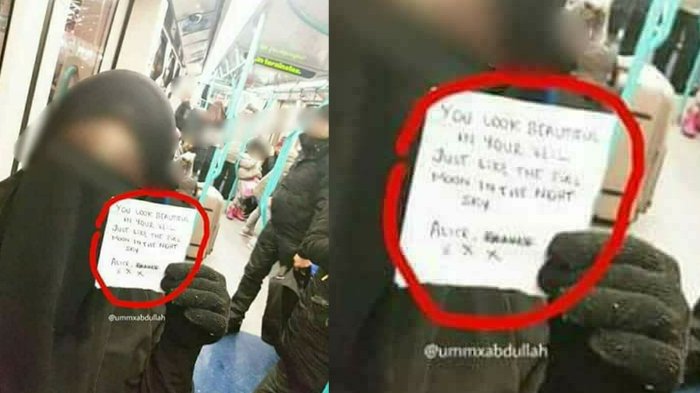 YOU LOOK BEAUTIFUL
IN YOUR VEIL
JUST LIKE THE FULL
MOON IN THE NIGHT
SKY
ALICE,
X X
@ummxabdullah
YOU LOOK BEAUTIFUL
IN YOUR VEIL
JUST LIKE THE FULL
MOON IN THE NIGHT
SKY
ALICE,
X X
@ummxabdullah